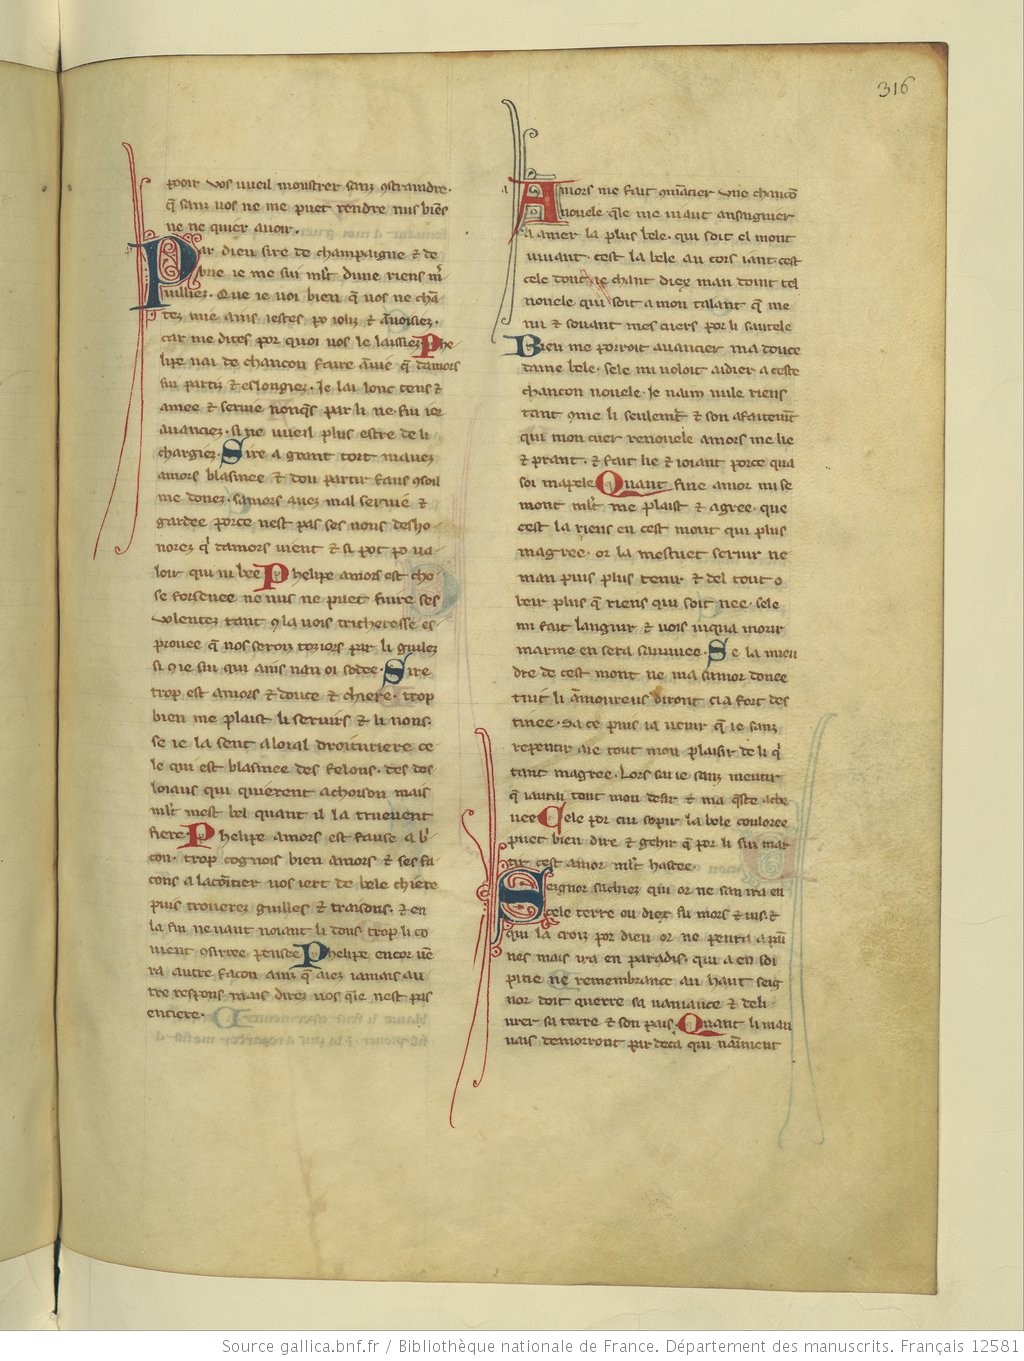 316
pooir vos vueil monstrer sanz ꝯtraindre.
q̃ sanz vos ne me puet rendre nus biẽs
ne ne quier avoir.
Par dieu sire de champaigne ⁊ de
brie ie me sui ml't dune riens m̃
uilliez. Que ie voi bien q̃ vos ne chã
tez mie ains iestes po iolis ⁊ ãvoisiez.
car me dites por quoi vos le laissiez Phe
lipe nai de chancon faire
sui partiz ⁊ eslongiez. Je lai lonc tens ⁊
amee ⁊ servie par li ne fui ier
avanciez. si ne vueil plus estre de li
chargiez. Sire a grant tort mavez
amors blasmee ⁊ dou partir faus ꝯsoil
me donez. samors avez mal servie ⁊
gardee porce nest pas ses nons desho
norez q̃ damors vient ⁊ si pot po va
loir qui ni bee Phelipe amors est cho
se forsenee ne nus ne puet faire ses
volentez tant ꝯ la vois tricheresse es
provee q̃ nos serois toziors par li guilez
si ꝯ ie sui qui ains nan oi sodee. Sire
trop est amors ⁊ douce ⁊ chiere. trop
bien me plaist li servirs ⁊ li nons.
se ie la sent a loial droituriere ce
le qui est blasmee des felons. des des
loiaus qui quierent achoison mais
ml't mest bel quant il la truevent
fiere. Phelipe amors est fause a b'
con. trop cognois bien amors ⁊ ses fa
cons a lacoitier vos iert de bele chiere
puis troverez guilles ⁊ traisons. ⁊ en
la fin ne vaut noiant li dons trop li co
vient ꝯsirree ꝑensee Phelipe encor vẽ
ra autre facon ainz q̃ aiez iamais au
tre respons mais direz vos q̃ie nest pas
entiere.
Amors me fait ꝯmãcier une chancõ
novele q̃le me vuaut ansaignier
a amer la plus bele. qui soit el mont
vivant. cest la bele au cors iant. cest
cele dont ie chant diex man doint tel
novele qui soit a mon talant q̃ me
nu ⁊ sovant mes cuers por li sautele
Bien me porroit avancier ma douce
dame bele. sele mi voloit aidier a ceste
chancon novele. Je naim nule riens
tant ꝯme li seulemt̃ ⁊ son afaitemt̃
qui mon cuer renovele amors me lie
⁊ prant. ⁊ fait lie ⁊ ioiant porce qua
soi mapele Quant fine amor mi se
mont ml't me plaist ⁊ agree. que
cest la riens en cest mont qui plus
magree. or la mestuet servir ne
man puis plus tenir ⁊ del tout o
beir plus q̃ riens qui soit nee. sele
mi fait languir ⁊ vois iuqua morir
marme en sera sauvee. Se la mieu
dre de cest mont ne ma samor donee
tuit li amoreus diront ci a fort des
tinee. Sa ce puis ia venir q̃ ie sanz
repentir aie tout mon plaisir de li q̃
tant magree. Lors sai ie sanz mentir
q̃ iaurai tout mon desir ⁊ ma q̃ste ache
vee Cele por cui sopir la bele couloree
puet bien dire ⁊ gehir q̃ por li sui mar
tir cest amor ml't hastee.
Seignor sachiez qui or ne san ira en
cele terre ou diex fu mors ⁊ vis. ⁊
qui la croiz por dieu or ne penra a pai
nes mais ira en paradis. qui a en soi
pitie ne remembrance au haut seig
nor doit querre sa vaniance ⁊ deli
vrer sa terre ⁊ son pais. Quant li mau
vais demorront par deca qui naiment